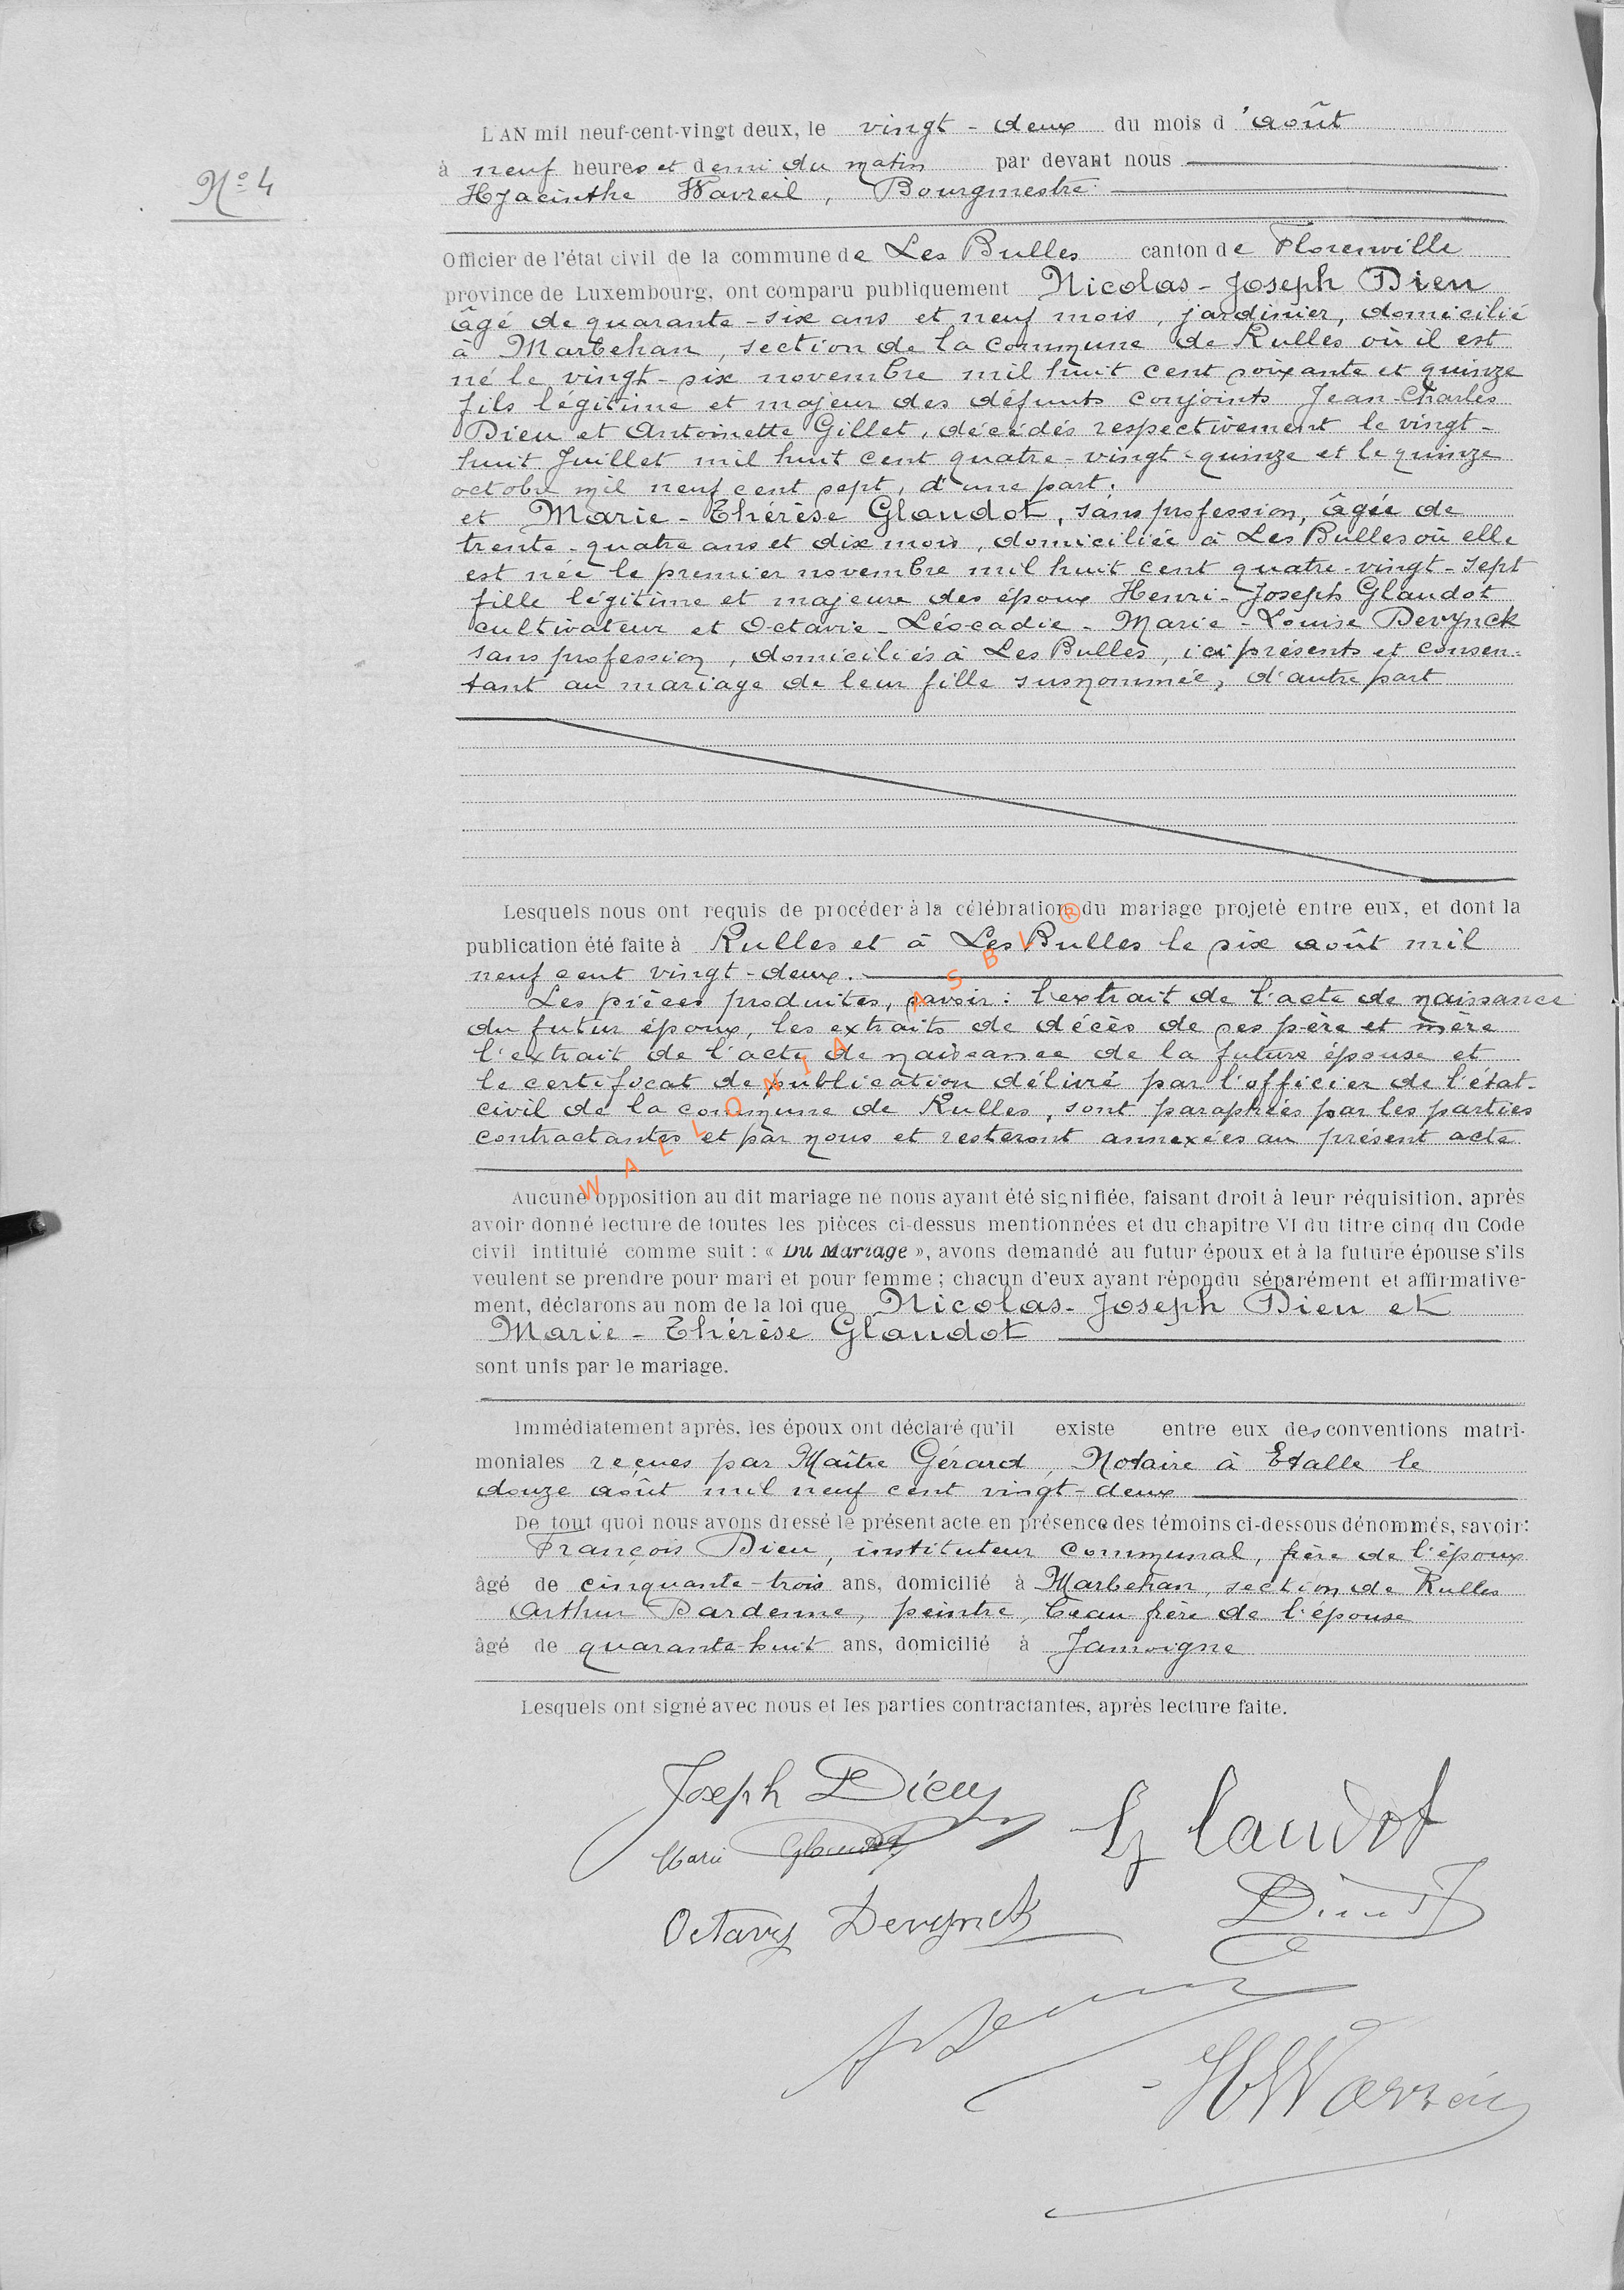 N° 4
L'AN mil neuf-cent-vingt deux, le vingt-deux du mois d'août
à neuf heures et demi du matin par devant nous
Hyacinthe Wavreil, Bourgmestre
Officier de l'état civil de la commune de Les Bulles canton de Florenville
province de Luxembourg, ont comparu publiquement Nicolas-Joseph Dieu
âgé de quarante-six ans et neuf mois, jardinier, domicilié
à Marbehan, section de la commune de Rulles où il est
né le vingt-six novembre mil huit cent soixante et quinze
fils légitime et majeur des défunts conjoints Jean-Charles
Dieu et Antoinette Gillet, décédés respectivement le vingt-
huit Juillet mil huit cent quatre-vingt-quinze et le quinze
octobre mil neuf cent sept, d'une part.
et Marie-Thérèse Glaudot, sans profession, âgée de
trente-quatre ans et dix mois, domiciliée à Les Bulles où elle
est née le premier novembre mil huit cent quatre-vingt-sept
fille légitime et majeure des époux Henri-Joseph Glaudot
cultivateur et Octavie-Léocadie-Marie-Louise Devynck
sans profession, domiciliés à Les Bulles, ici présents et consen-
tant au mariage de leur fille susnommée, d'autre part
Lesquels nous ont requis de procéder à la célébration du mariage projeté entre eux, et dont la
publication été faite à Rulles et à Les Bulles le six août mil
neuf cent vingt-deux.
Les pièces produites, savoir : l'extrait de l'acte de naissance
du futur époux, les extraits de décès de ses père et mère
l'extrait de l'acte de naissance de la future épouse et
le certificat de publication délivré par l'officier de l'état-
civil de la commune de Rulles, sont paraphées par les parties
contractantes et par nous et resteront annexées au présent acte
WALLONIA ASBL ®
Aucune opposition au dit mariage ne nous ayant été signifiée, faisant droit à leur réquisition, après
avoir donné lecture de toutes les pièces ci-dessus mentionnées et du chapitre VI du titre cinq du Code
civil intitulé comme suit : « Du Mariage », avons demandé au futur époux et à la future épouse s'ils
veulent se prendre pour mari et pour femme ; chacun d'eux ayant répondu séparément et affirmative-
ment, déclarons au nom de la loi que Nicolas-Joseph Dieu et
Marie-Thérèse Glaudot
sont unis par le mariage.
Immédiatement après, les époux ont déclaré qu'il existe entre eux des conventions matri-
moniales reçues par Maître Gérard, Notaire à Etalle le
douze août mil neuf cent vingt-deux
De tout quoi nous avons dressé le présent acte en présence des témoins ci-dessous dénommés, savoir:
François Dieu, instituteur communal, frère de l'époux
âgé de cinquante-trois ans, domicilié à Marbehan, section de Rulles
Arthur Dardenne, peintre, beau-frère de l'épouse
âgé de quarante-huit ans, domicilié à Jamoigne
Lesquels ont signé avec nous et les parties contractantes, après lecture faite.
Joseph Dieu
Glaudot
Marie Glaudot
Octavie Devynck
Dieu
H Wavreil